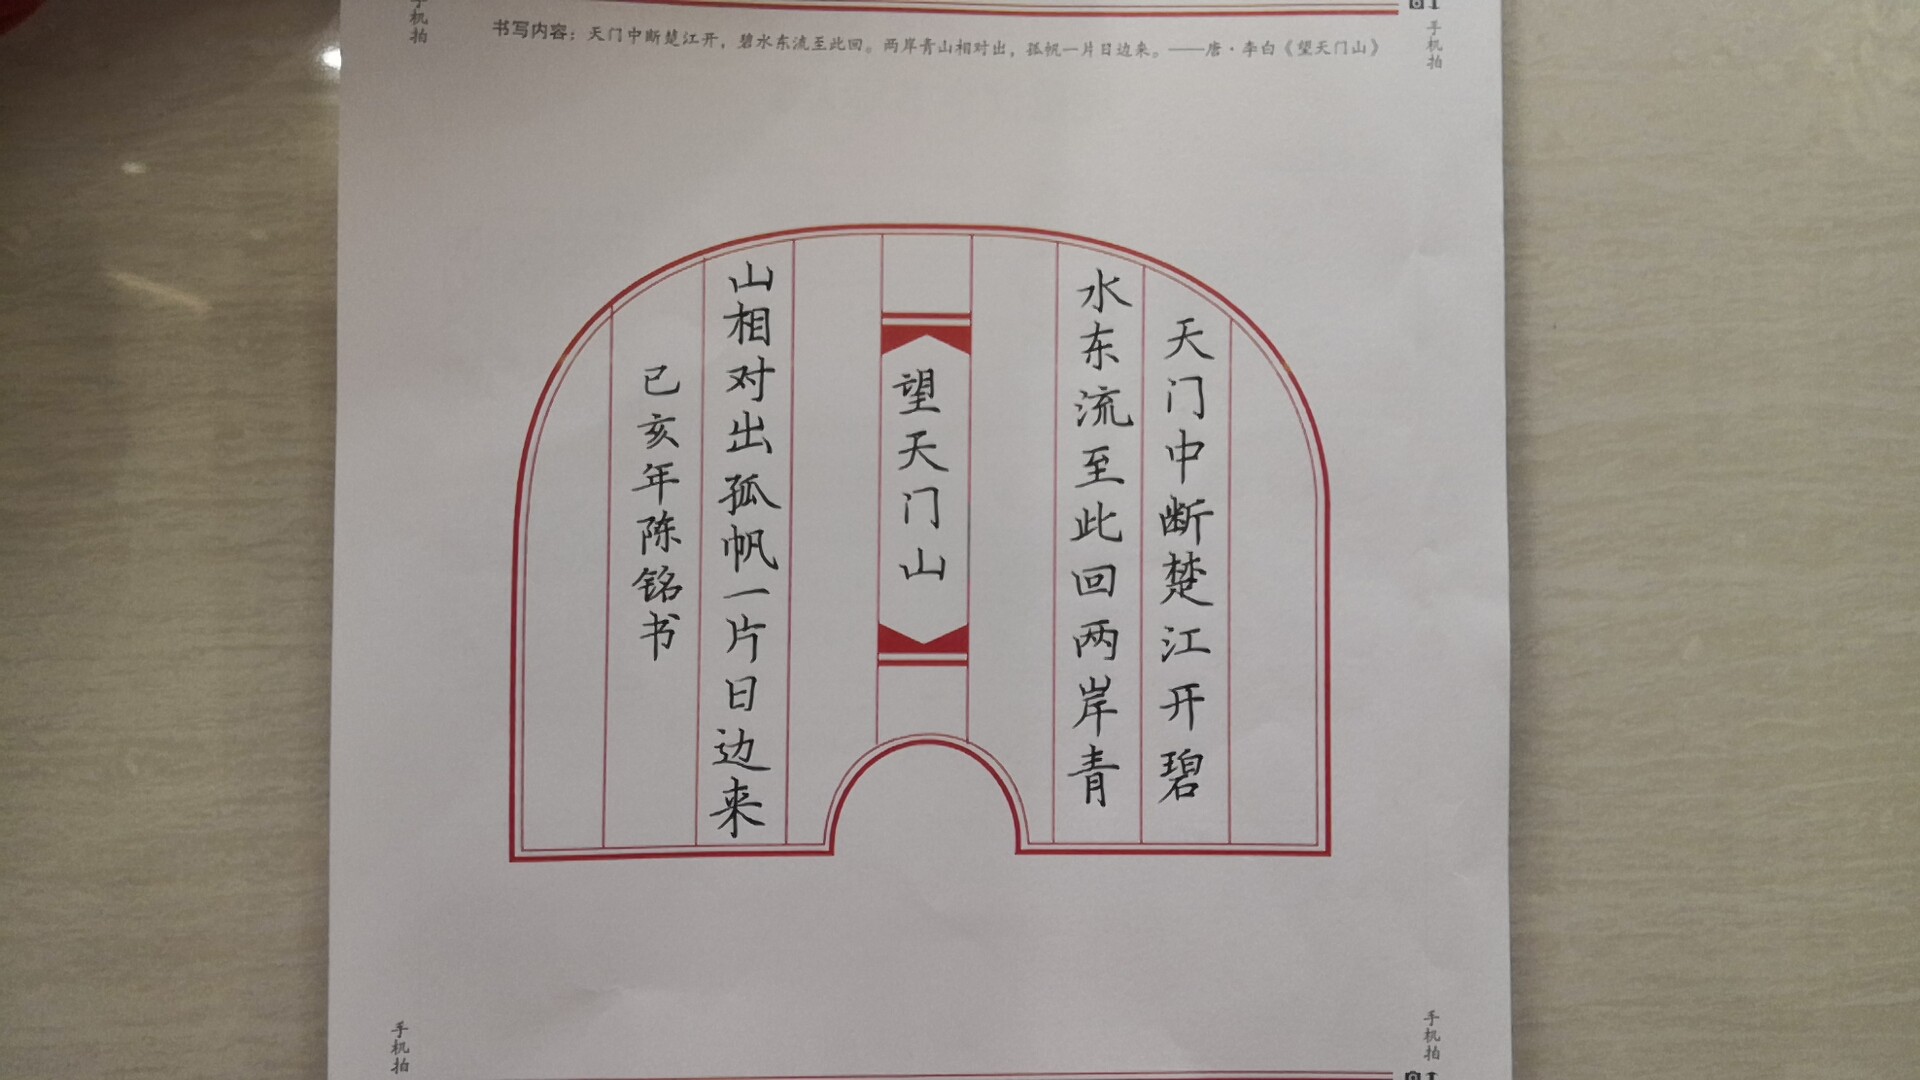 手机拍
手机拍
书写内容：天门中断楚江开，碧水东流至此回。两岸青山相对出，孤帆一片日边来。——唐·李白《望天门山》
天门中断楚江开碧
水东流至此回两岸青
望天门山
山相对出孤帆一片日边来
已亥年陈铭书
手机拍
手机拍